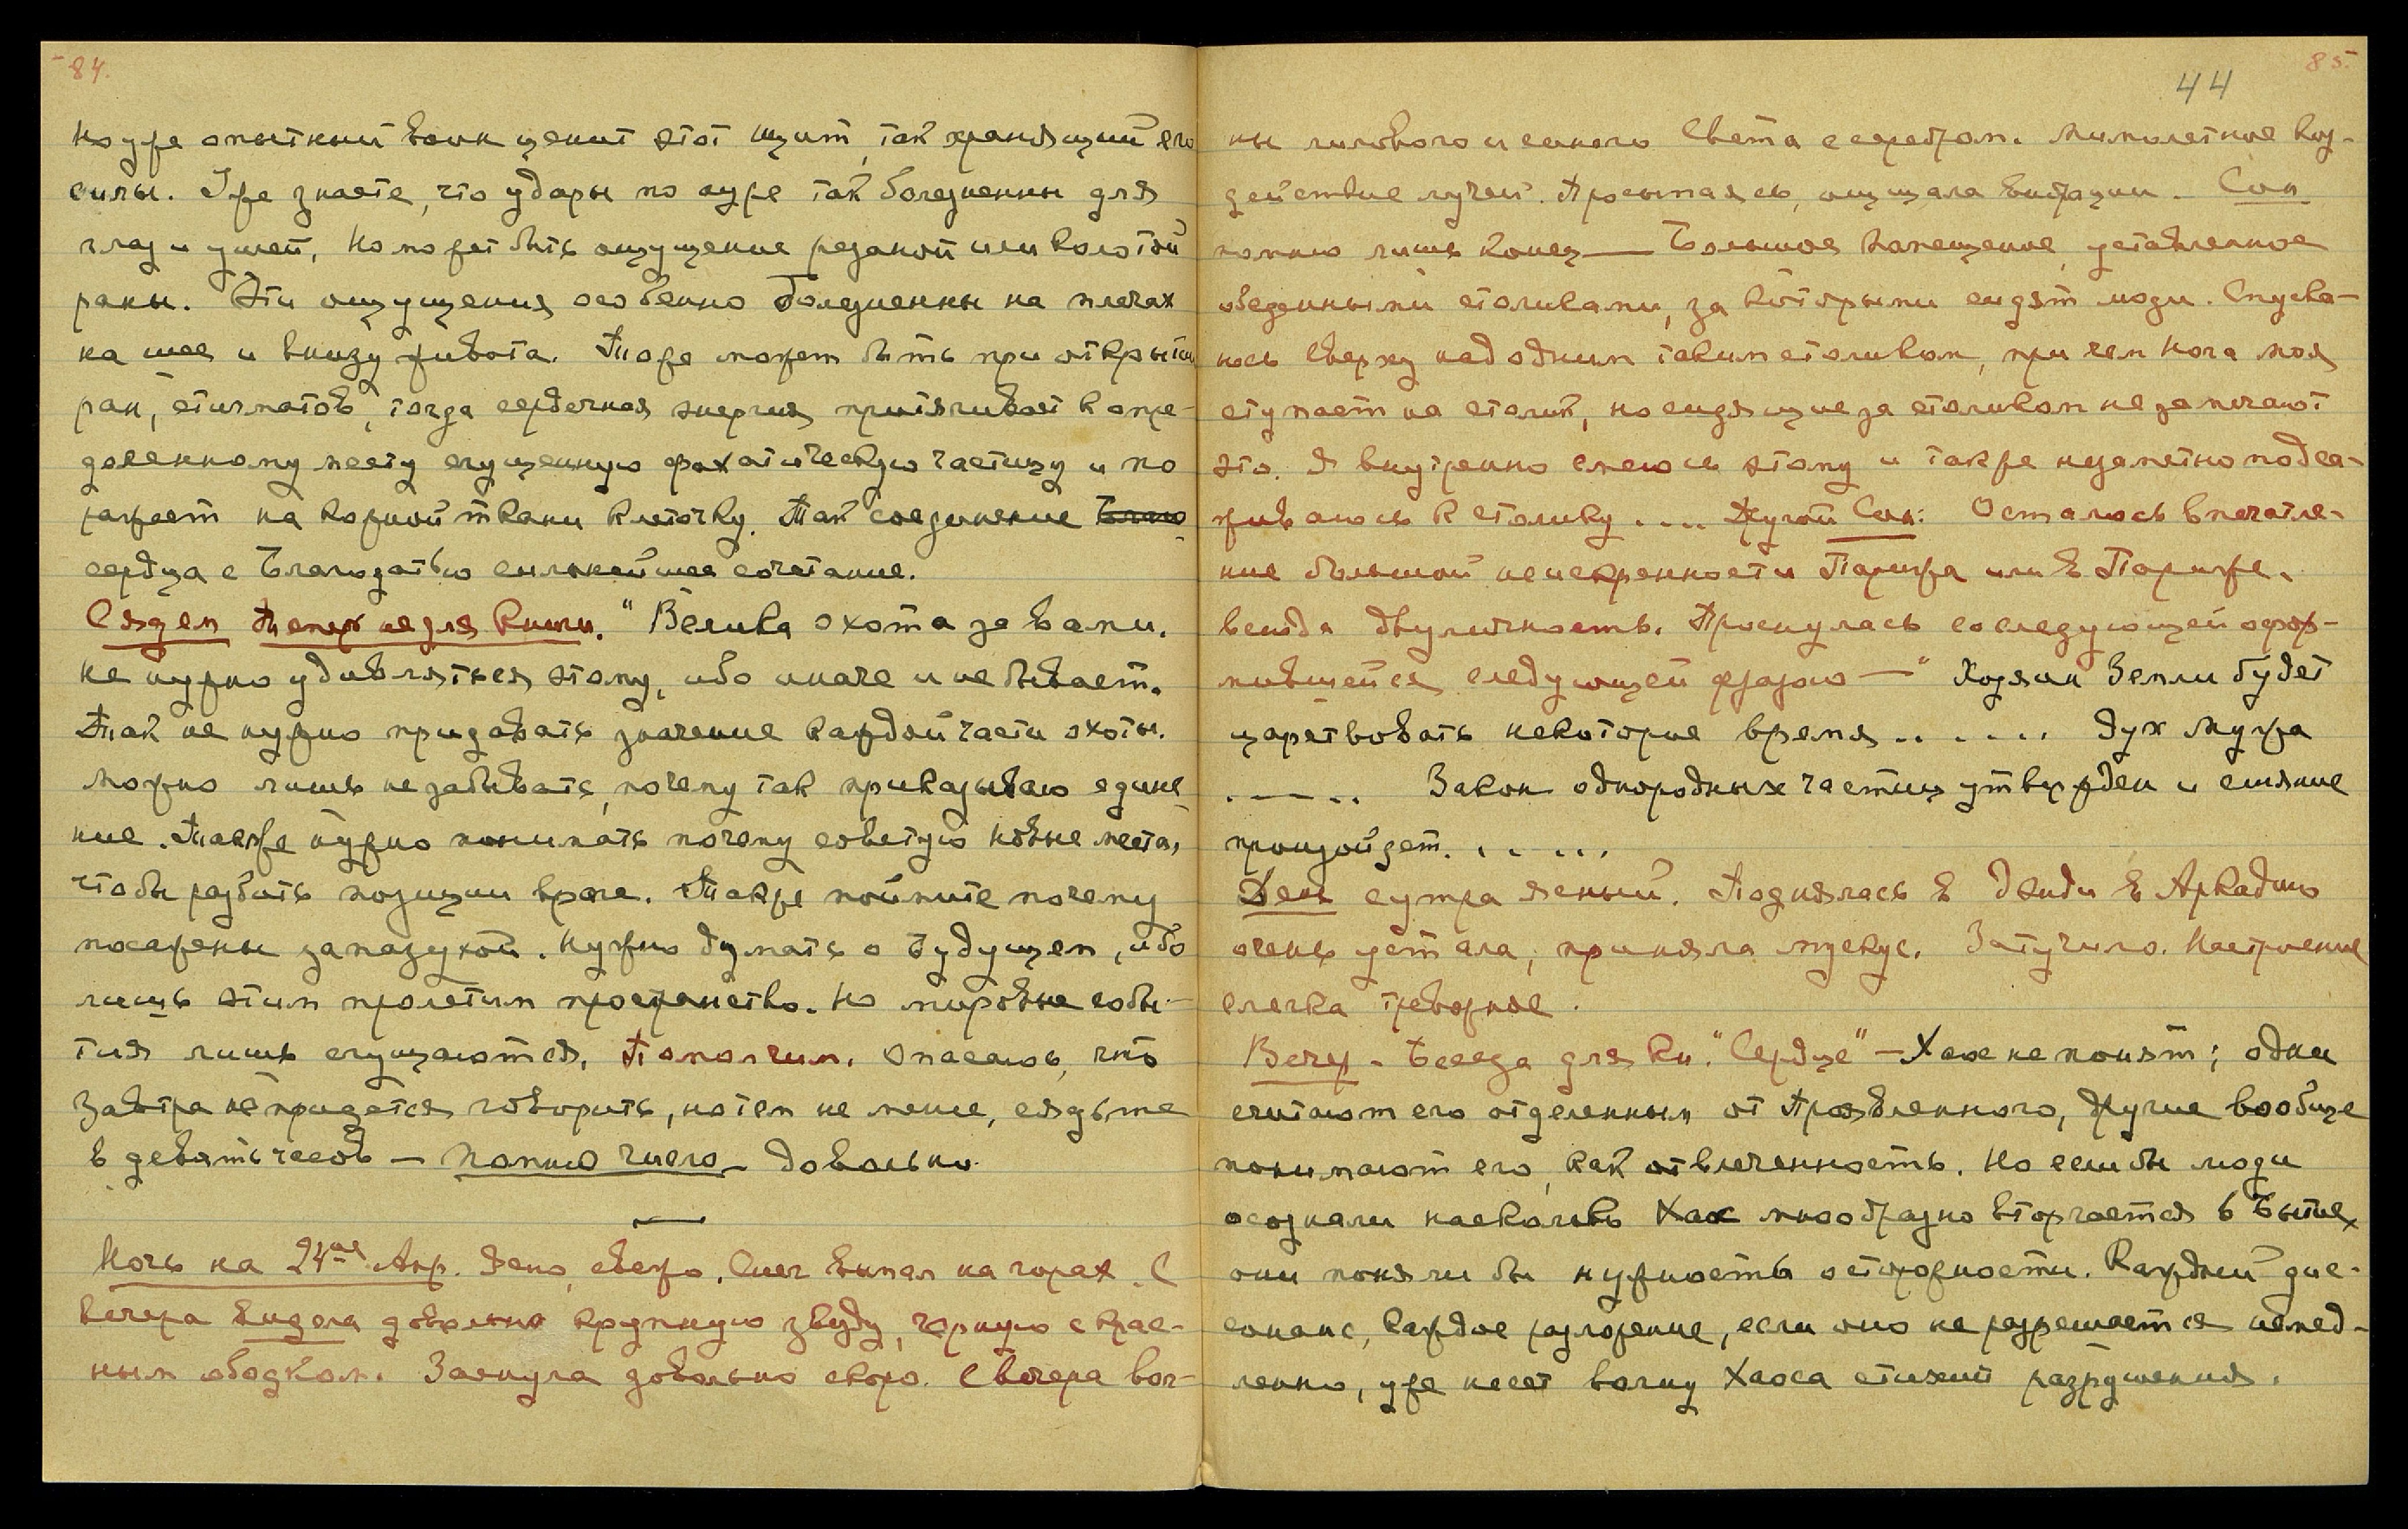 84.
Но уже опытный воин ценит этот щит, так хранящий его
силы. Уже знаете, что удары по ауре так болезненны для
глаз и ушей, но может быть ощущение резаной или колотой
раны. Эти ощущения особенно болезненны на плечах
на шее и внизу живота. Тоже может быть при открытии
ран, стигматов, тогда сердечная энергия притягивает к опре-
деленному месту сгущенную фохатическую частицу и по
ражает на кожной ткани клеточку. Так соединение
сердца с Благодатью сильнейшее сочетание.
Сядем Теперь не для книги. " Велика охота за вами.
не нужно удивляться этому, ибо иначе и не бывает.
Так не нужно придавать значение каждой части охоты.
можно лишь не забывать, почему так приказываю едине-
ние. Также нужно понимать почему советую новые места,
чтобы разбить позиции врага. Также поймите почему
посажены за пазухой. Нужно думать о Будущем, ибо
лишь этим пролетим пространство. Но мировые собы-
тия лишь сгущаются. Помолчим. Опасаюсь, что
Завтра не придется говорить, но тем не менее, сядьте
в девять часов — помню число — довольно.
Ночь на 24ое Апр. Ясно, свежо. Снег выпал на горах. С
вечера видела довольно крупную звезду, черную с крас-
ным ободком. Заснула довольно скоро. С вечера вол-
44
85
ны лилового и синего Света с серебром. Мимолетное воз-
действие лучей. Просыпаясь, ощущала вибрации. Сон
помню лишь конец — Большое помещение, уставленное
обеденными столиками, за которыми сидят люди. Спуска-
юсь сверху над одним таким столиком, при чем нога моя
ступает на столик, но сидящие за столиком не замечают
это. Я внутренно смеюсь этому и также незаметно подса-
живаюсь к столику .... Другой Сон: Осталось впечатле-
ние большой неискренности Парижа или в Париже.
всюду двуличность. Проснулась со следующей офор-
мившейся следующей фразою — " Хозяин Земли будет
царствовать некоторые время ...... Дух Мужа
..... Закон однородных частиц утвержден и слияние
произойдет. .....
День с утра ясный. Поднялась в дэнди в Аркадию
очень устала, приняла мускус. Затучило. Настроение
слегка тревожное.
Вечер. Беседа для кн. "Сердце" — Хаос не понят; одни
считают его отделенным от Проявленного, другие вообще
понимают его, как отвлеченность. Но если бы люди
осознали насколько Хаос многообразно вторгается в Бытие,
они поняли бы нужность осторожности. Каждый дис-
сонанс, каждое разложение, если оно не разрешается немед-
ленно, уже несет волну Хаоса стихий разрушения.